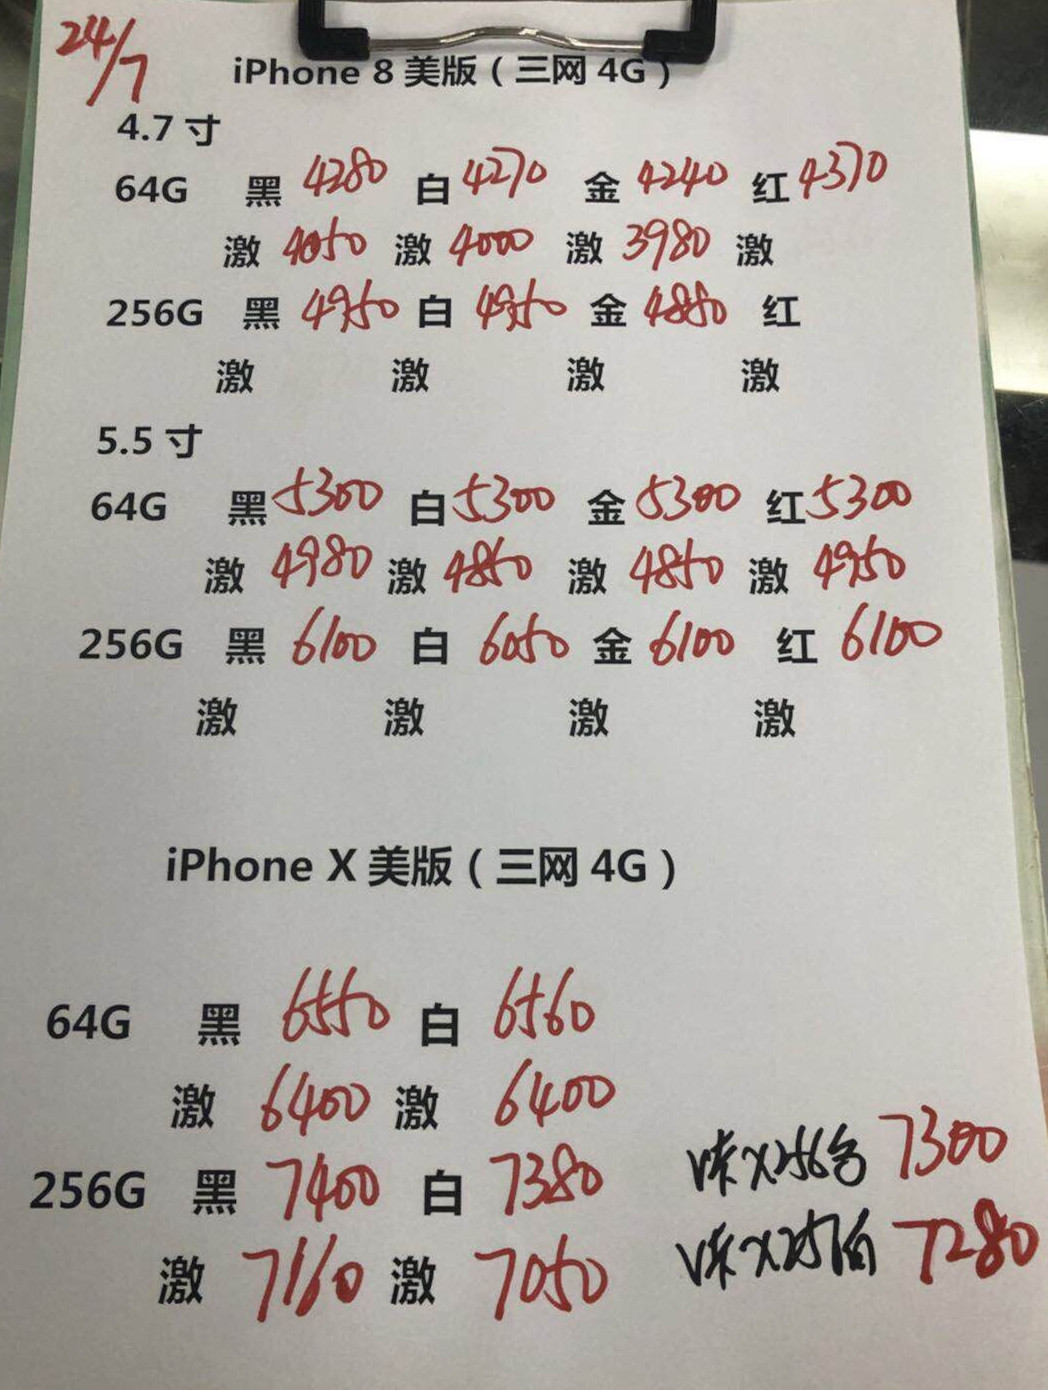 24/7
iPhone 8 美版（三网 4G）
4.7 寸
64G 黑 4280 白 4270 金 4240 红 4370
激 4050 激 4000 激 3980 激
256G 黑 4950 白 4950 金 4880 红
激 激 激 激
5.5 寸
64G 黑 5300 白 5300 金 5300 红 5300
激 4980 激 4850 激 4850 激 4950
256G 黑 6100 白 6050 金 6100 红 6100
激 激 激 激
iPhone X 美版（三网 4G）
64G 黑 6550 白 6560
激 6400 激 6400
256G 黑 7400 白 7380
激 7160 激 7050
X256 7300
X 7280